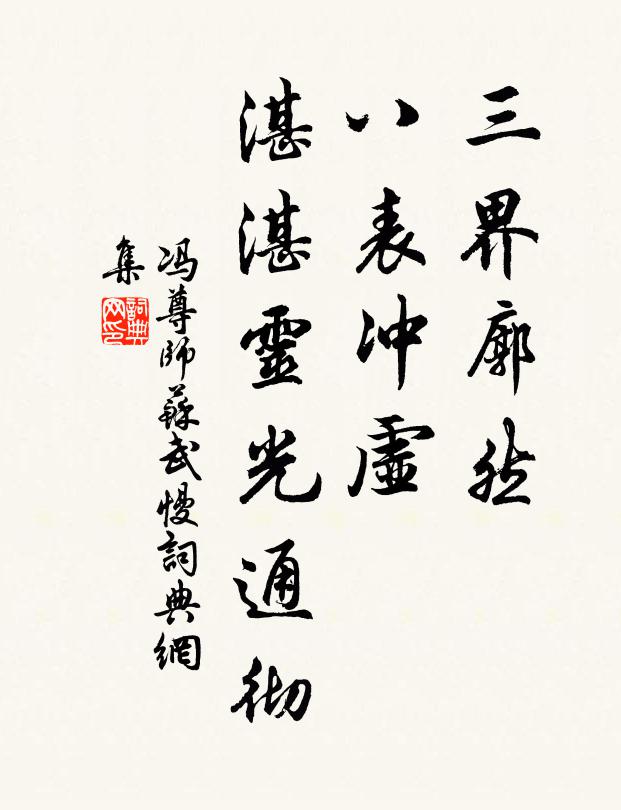 三界廓然
八表冲虛
湛湛靈光通彻
冯尊師蘇武慢詞典網
集
詞典
网印